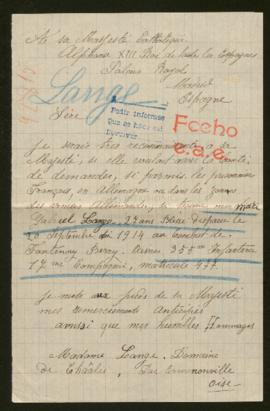 A sa Majesté Catholique
Alphonse XIII Roi de toutes les Espagnes
Palais Royal
Madrid
Espagne
Lange
Sire
Pedir informes
Que se hace así
Fecho
je serais très reconnaissante à sa
Majesté, si elle voulait avoir la bonté
de demander, si parmi les prisonniers
Français, en Allemagne ou dans les zones
des armées Allemandes, se trouve mon mari
Gabriel Lange, 27 ans Blessé disparu le
20 Septembre 1914 au combat de
Fontenoy Aisne, 355me Infanterie
17me Compagnie, matricule
je mets aux pieds de sa Majesté
mes remerciements anticipés
ainsi que mes humbles Hommages
Madame Lange, Domaine
de Chââlis, Par Ermenonville
Oise